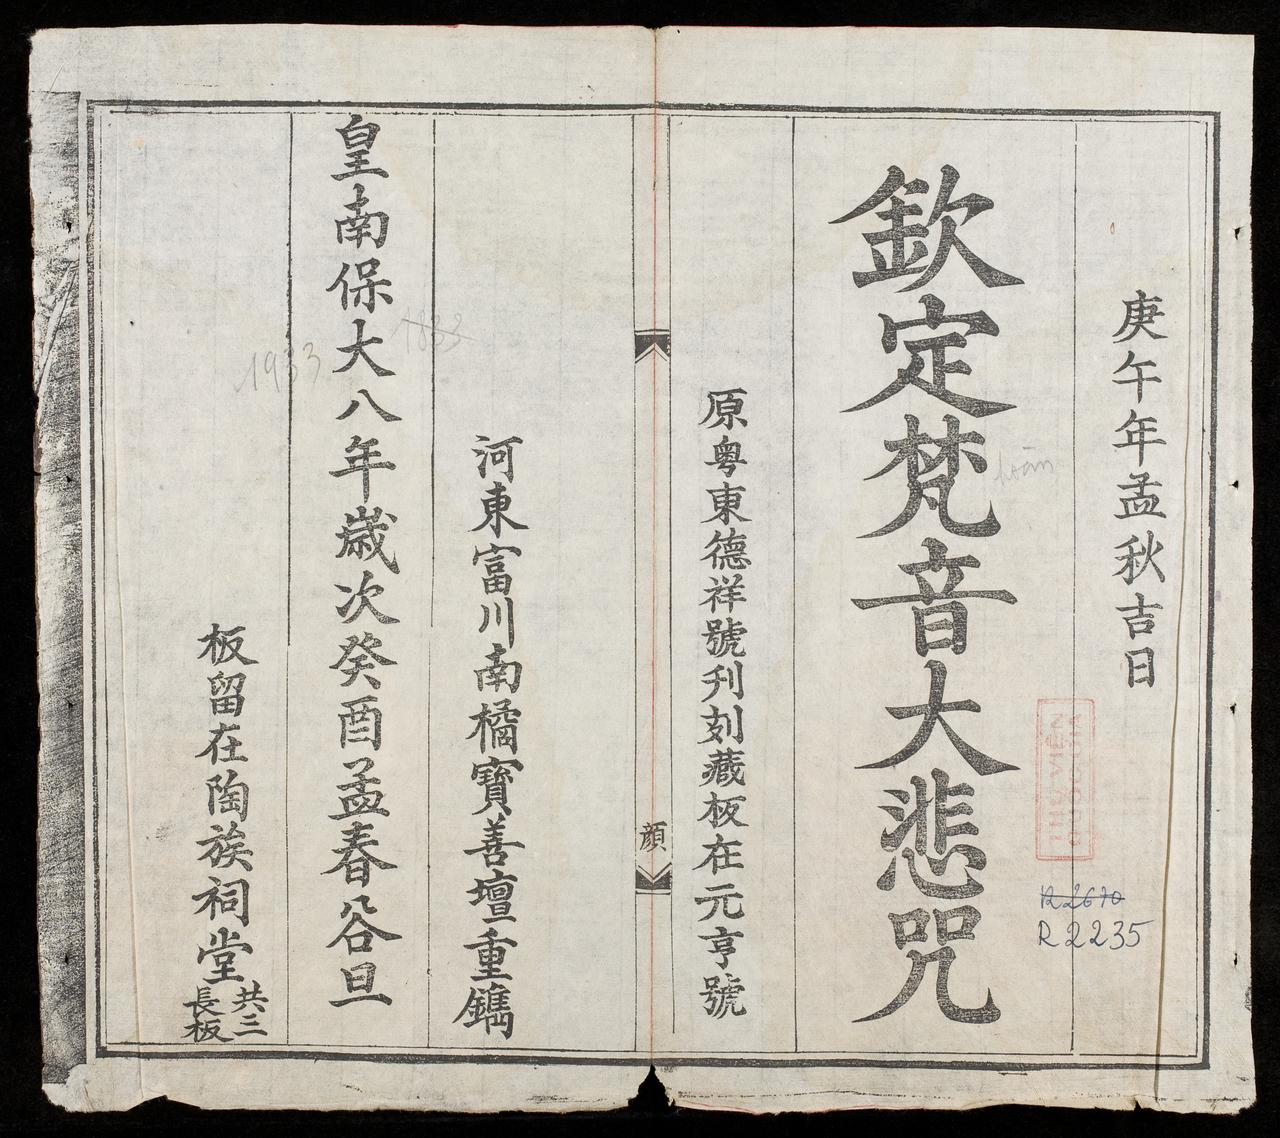 庚午年孟秋吉日
欽定梵音大悲咒
原粵東德祥號刋刻藏板在元亨號
顔
河東富川南橘寶善壇重鐫
皇南保大八年歲次癸酉孟春谷旦
板留在陶族祠堂共三長板
1933
1833
R 2670
R 2235